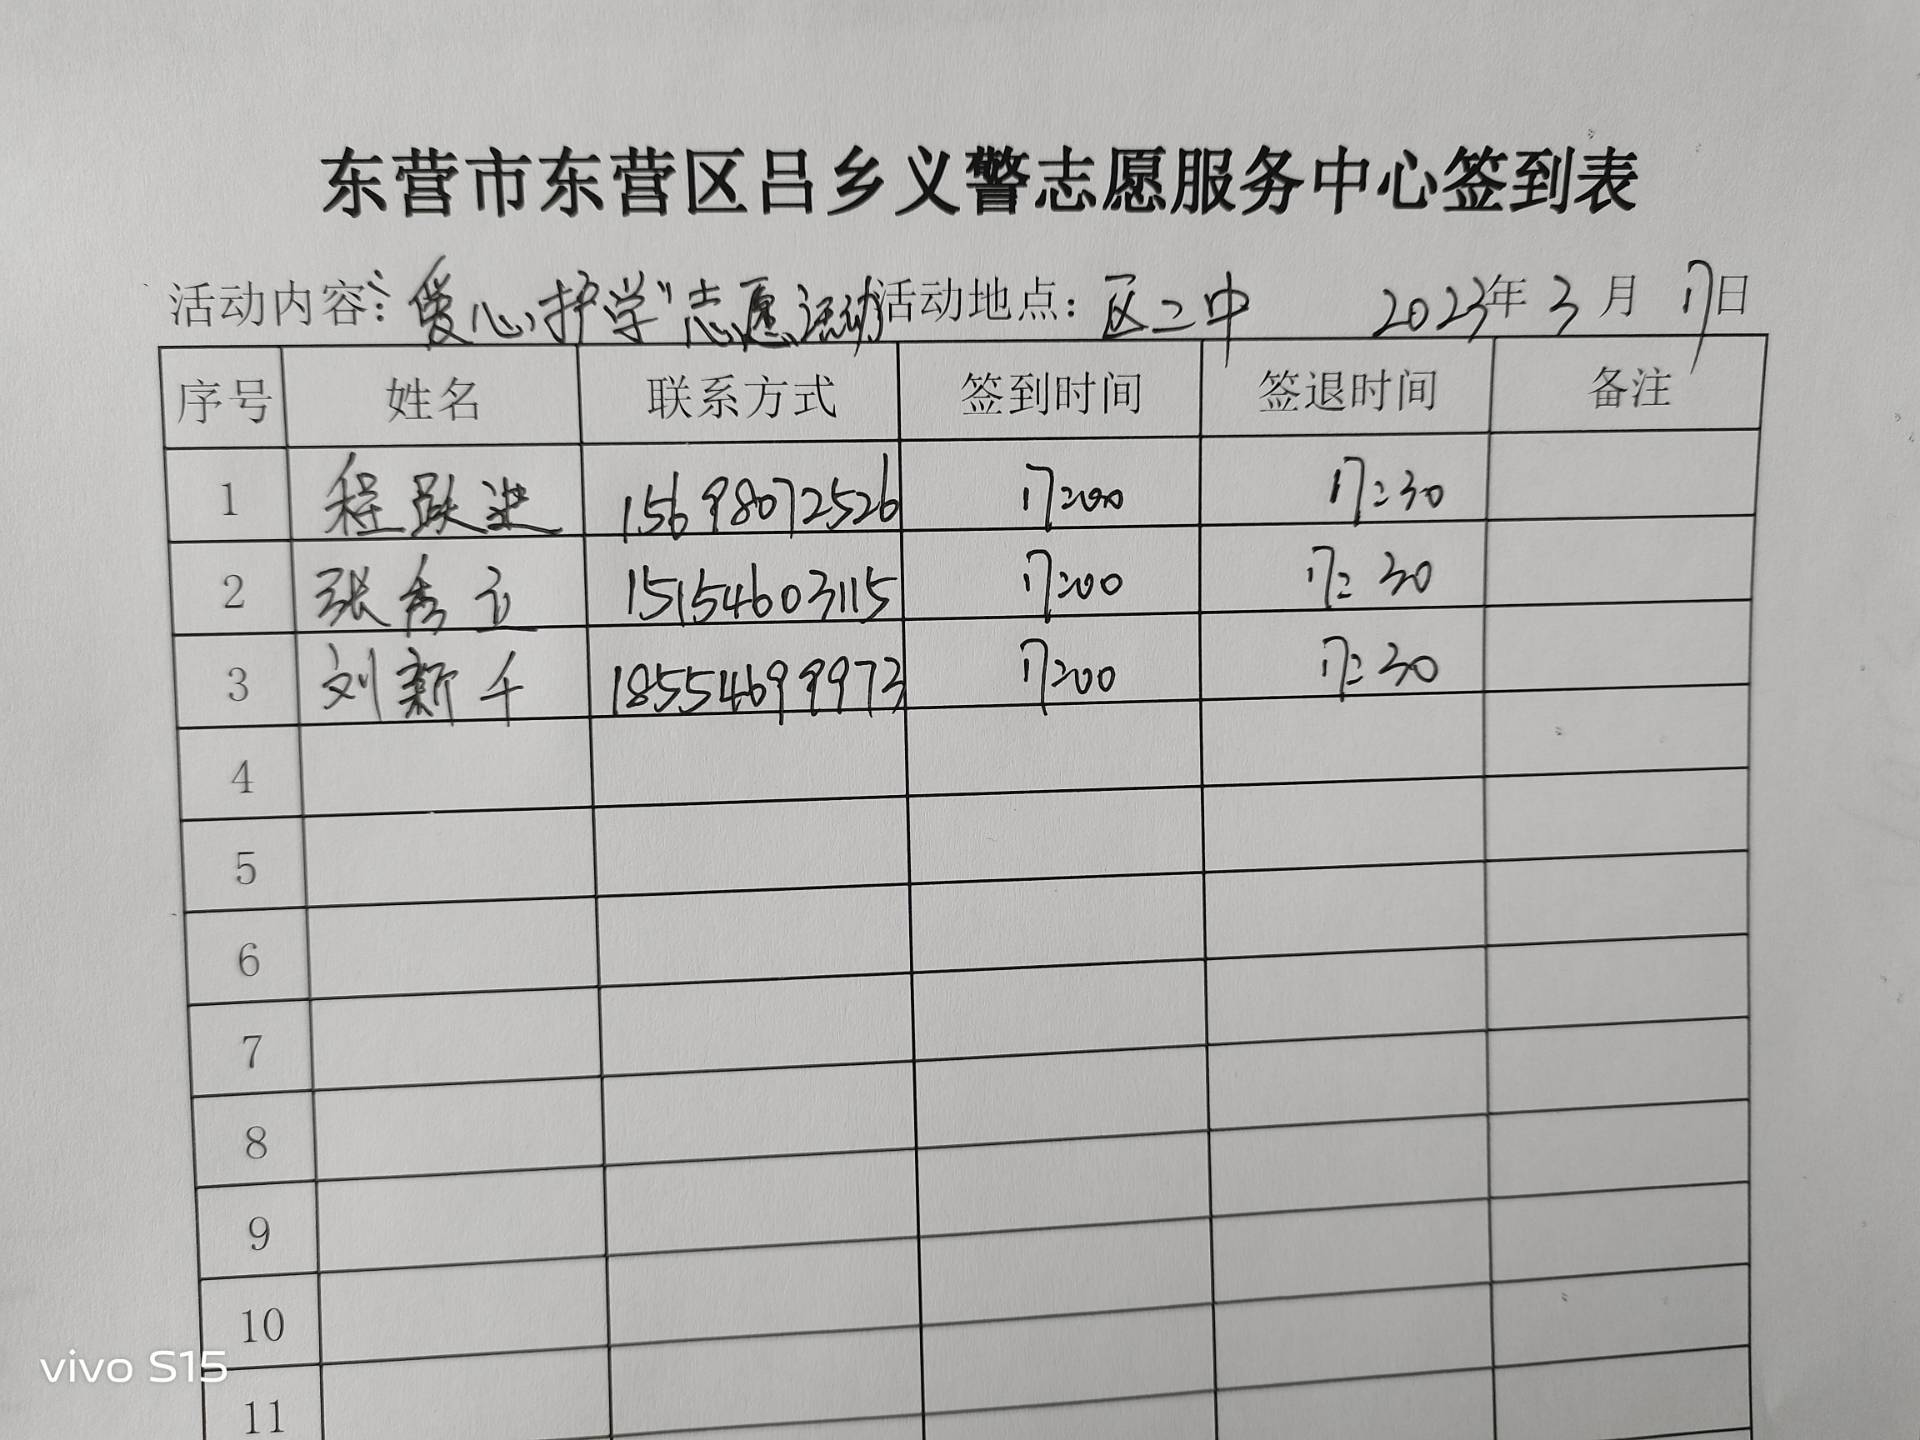 东营市东营区吕乡义警志愿服务中心签到表
活动内容:“爱心护学”志愿活动 活动地点:区二中 2023年3月17日
序号 姓名 联系方式 签到时间 签退时间 备注
1 程跃进 15698072526 17:00 17:30
2 张秀立 15154603115 17:00 17:30
3 刘新千 18554699973 17:00 17:30
4
5
6
7
8
9
10
11
vivo S15